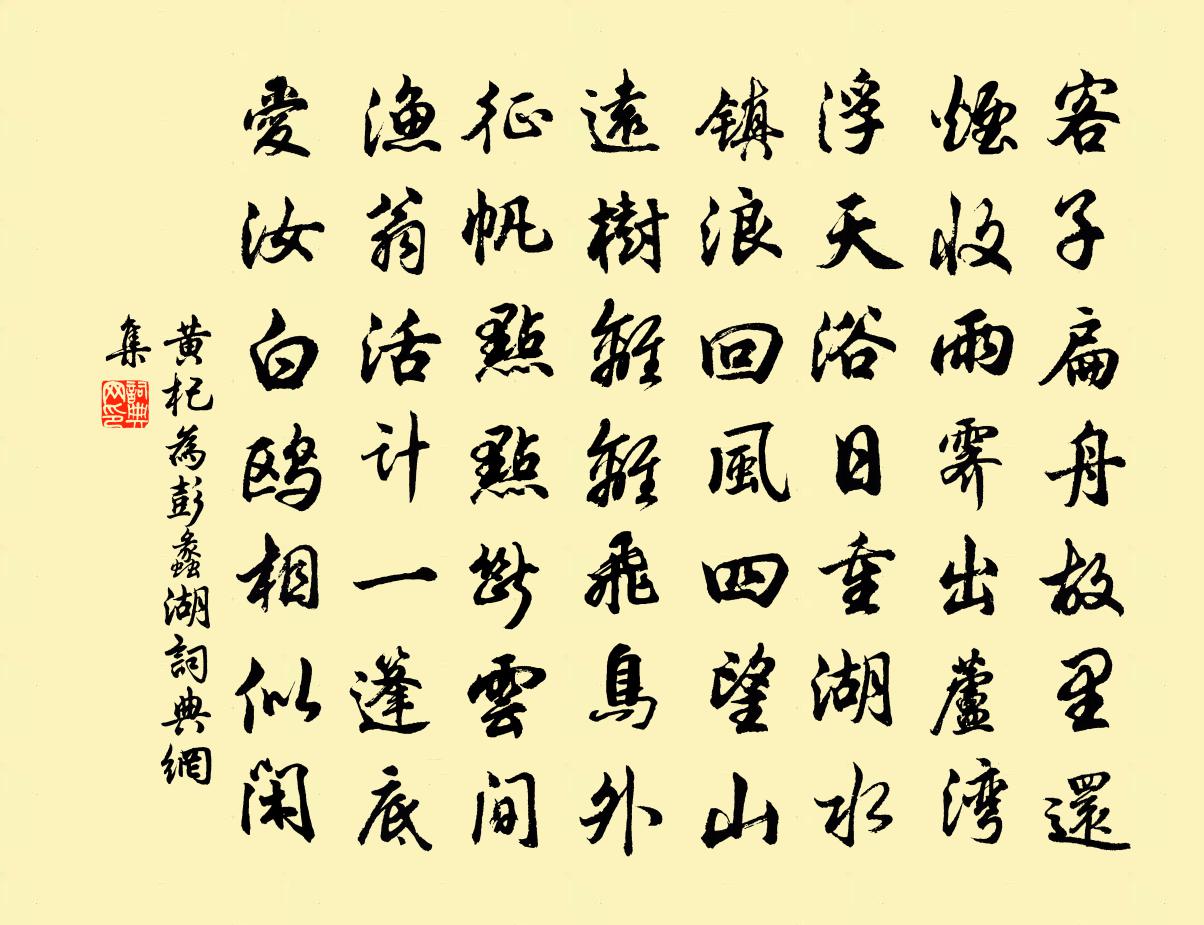 客子扁舟故里還
煙收雨霽出蘆湾
浮天浴日重湖水
镇浪回風四望山
遠樹離離飛鳥外
征帆點點斷雲間
漁翁活计一蓬底
愛汝白鸥相似闲
黄杞為彭蠡湖詞典網
集
詞典网印